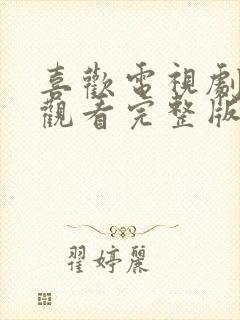 喜歡電視劇
觀看完整版
翟婷麗